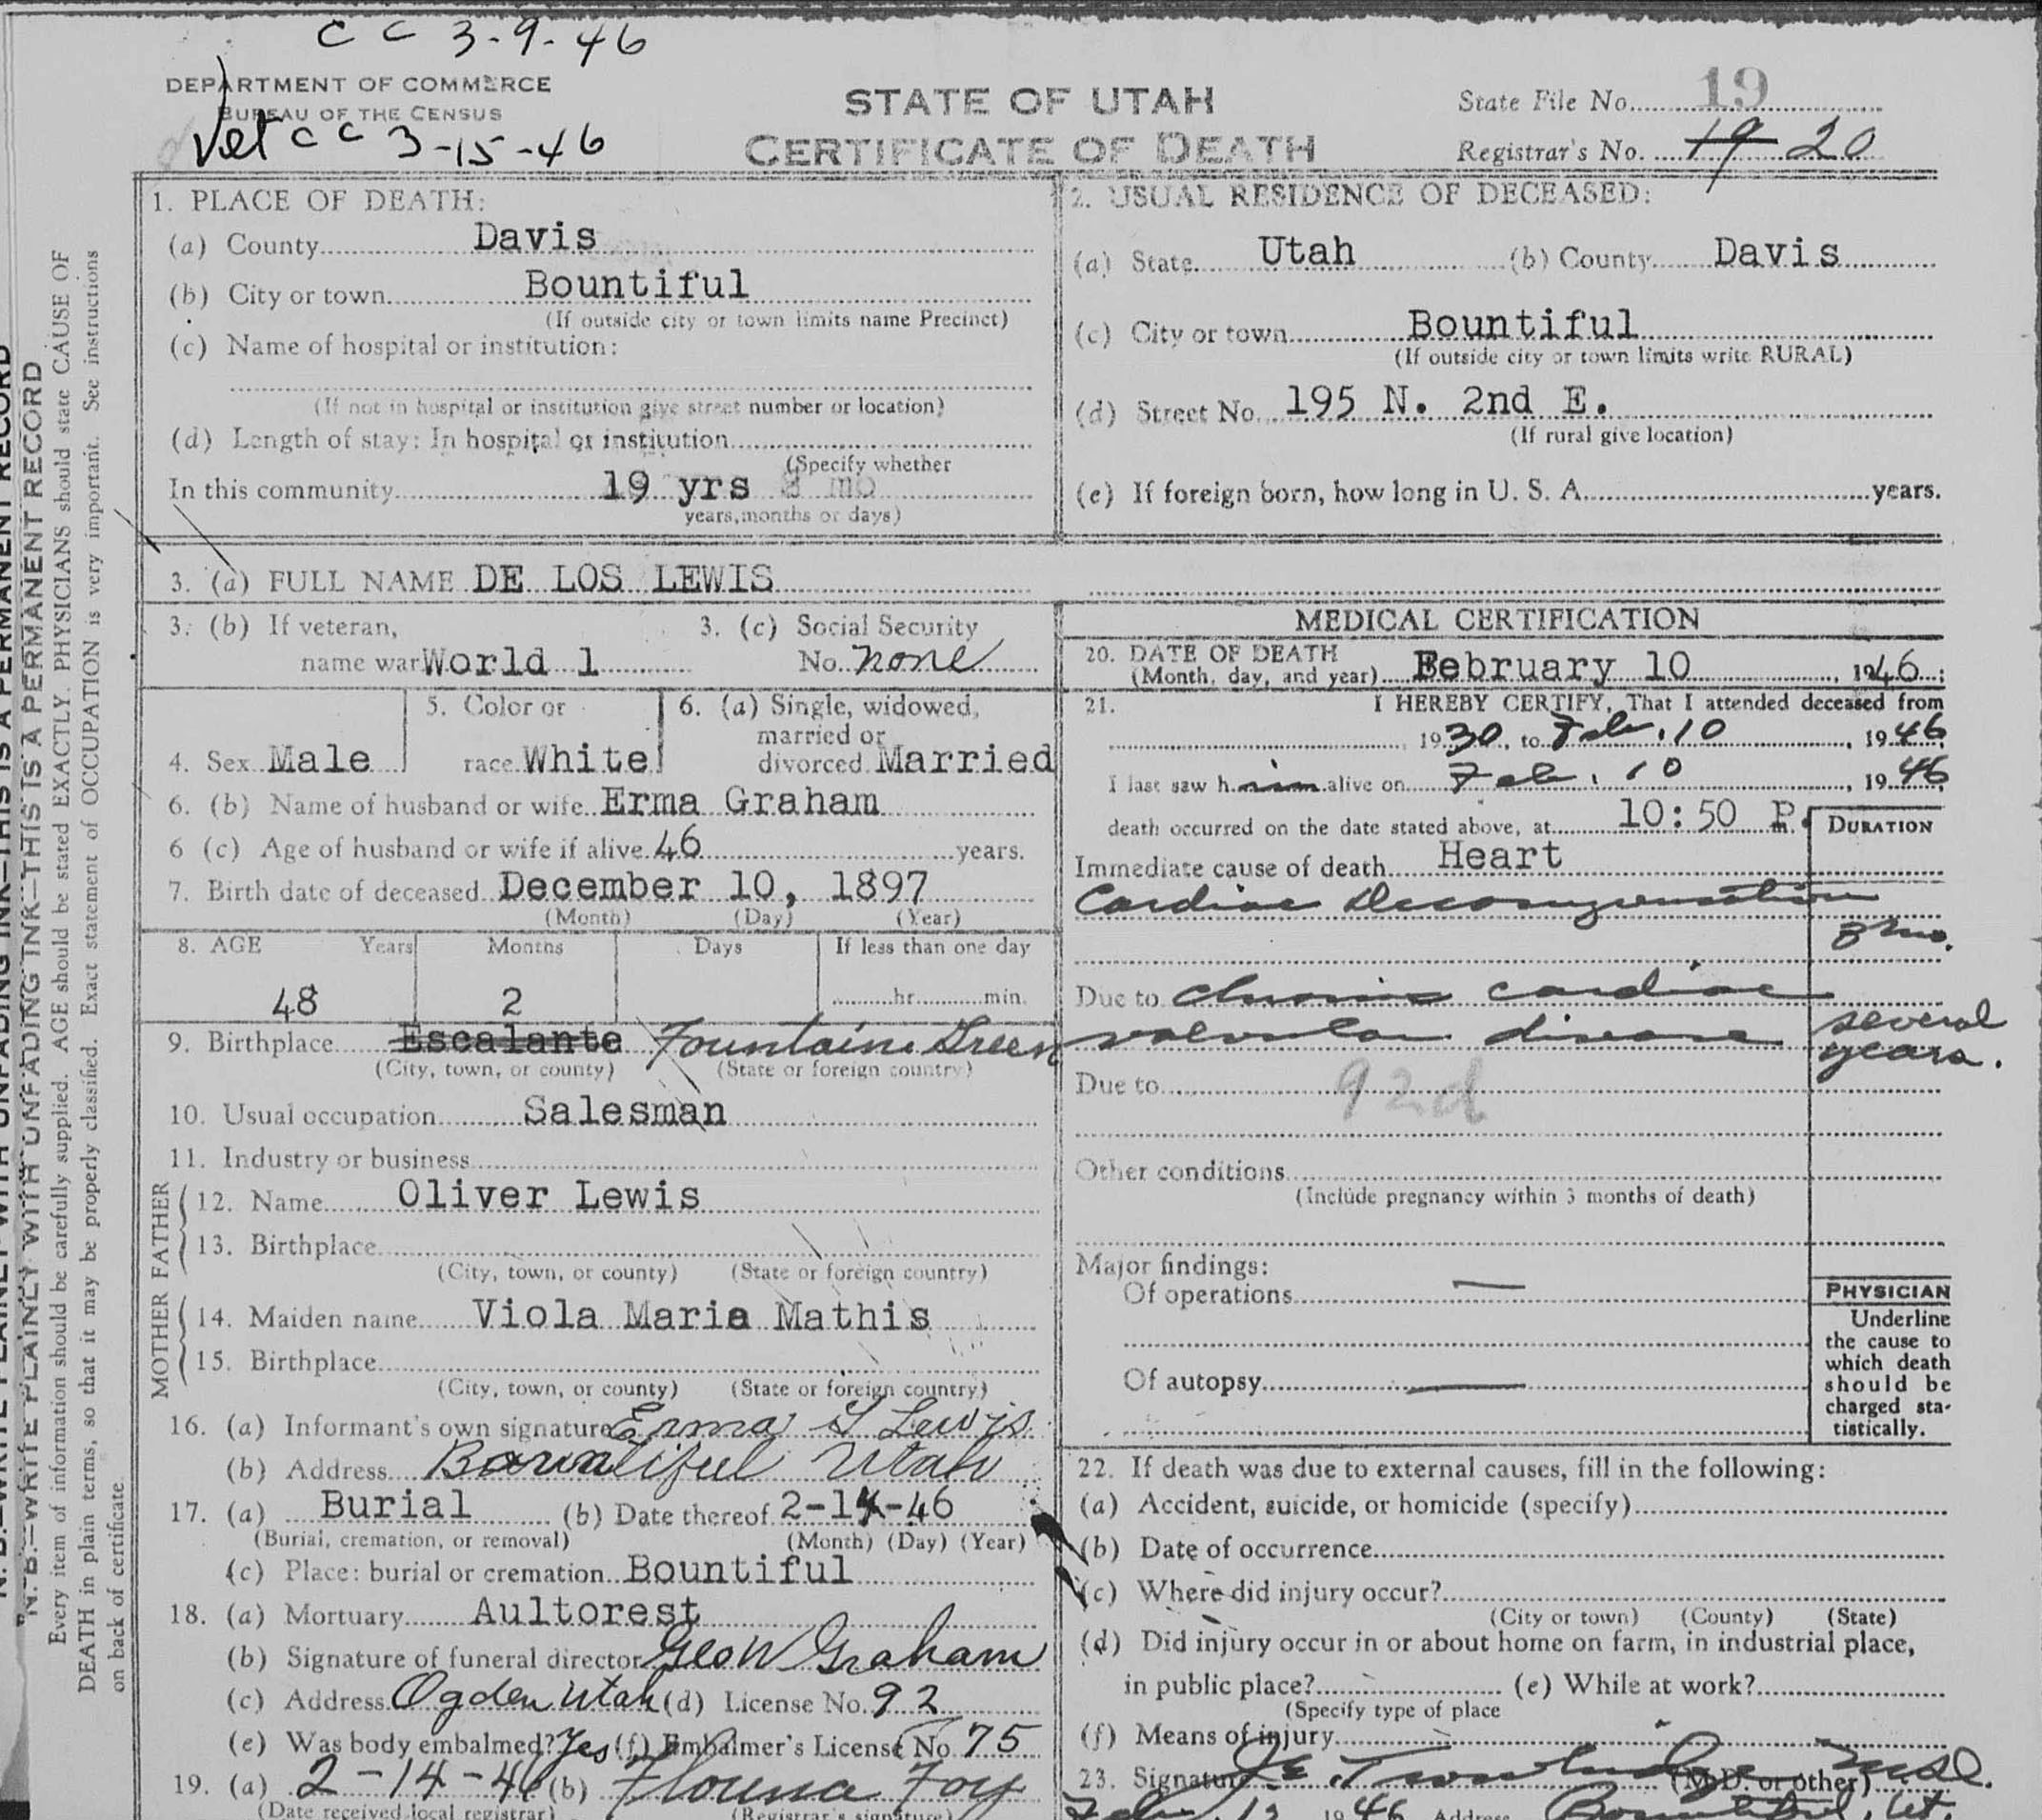 C C 3-9-46
DEPARTMENT OF COMMERCE
BUREAU OF THE CENSUS
Vet C C 3-15-46
STATE OF UTAH
CERTIFICATE OF DEATH
State File No. 19
Registrar's No. 19 20
1. PLACE OF DEATH:
(a) County Davis
(b) City or town Bountiful
(If outside city or town limits name Precinct)
(c) Name of hospital or institution:
(If not in hospital or institution give street number or location)
(d) Length of stay: In hospital or institution
(Specify whether
In this community 19 yrs 8 mo
years, months or days)
2. USUAL RESIDENCE OF DECEASED:
(a) State Utah (b) County Davis
(c) City or town Bountiful
(If outside city or town limits write RURAL)
(d) Street No. 195 N. 2nd E.
(If rural give location)
(e) If foreign born, how long in U. S. A. years.
3. (a) FULL NAME DE LOS LEWIS
3. (b) If veteran,
name war World 1
3. (c) Social Security
No. none
4. Sex Male
5. Color or
race White
6. (a) Single, widowed,
married or
divorced Married
6. (b) Name of husband or wife Erma Graham
6 (c) Age of husband or wife if alive 46 years.
7. Birth date of deceased December 10, 1897
(Month) (Day) (Year)
8. AGE Years Months Days If less than one day
48 2 hr. min.
9. Birthplace Escalante Fountain Green
(City, town, or county) (State or foreign country)
10. Usual occupation Salesman
11. Industry or business
FATHER
12. Name Oliver Lewis
13. Birthplace
(City, town, or county) (State or foreign country)
MOTHER
14. Maiden name Viola Maria Mathis
15. Birthplace
(City, town, or county) (State or foreign country)
16. (a) Informant's own signature Erma G Lewis
(b) Address Bountiful Utah
17. (a) Burial (b) Date thereof 2-14-46
(Burial, cremation, or removal) (Month) (Day) (Year)
(c) Place: burial or cremation Bountiful
18. (a) Mortuary Aultorest
(b) Signature of funeral director Geo W Graham
(c) Address Ogden Utah (d) License No. 92
(e) Was body embalmed? Yes (f) Embalmer's License No. 75
19. (a) 2-14-46 (b) Foy
(Date received local registrar) (Registrar's signature)
MEDICAL CERTIFICATION
20. DATE OF DEATH
(Month, day, and year) February 10, 1946;
21. I HEREBY CERTIFY, That I attended deceased from
1930, to Feb. 10, 1946
I last saw him alive on Feb. 10, 1946
death occurred on the date stated above, at 10:50 P. m.
DURATION
Immediate cause of death Heart
Cardiac Decompensation
8 mo.
Due to chronic cardiac
valvular disease several years.
Due to 92d
Other conditions
(Include pregnancy within 3 months of death)
Major findings:
Of operations —
Of autopsy —
PHYSICIAN
Underline
the cause to
which death
should be
charged sta-
tistically.
22. If death was due to external causes, fill in the following:
(a) Accident, suicide, or homicide (specify)
(b) Date of occurrence
(c) Where did injury occur?
(City or town) (County) (State)
(d) Did injury occur in or about home on farm, in industrial place,
in public place? (e) While at work?
(Specify type of place
(f) Means of injury
23. Signature (M. D. or other)
Feb. 13 1946 Address Bountiful, Ut
N. B.—WRITE PLAINLY WITH UNFADING INK—THIS IS A PERMANENT RECORD
N. B.—WRITE PLAINLY WITH UNFADING INK—THIS IS A PERMANENT RECORD
Every item of information should be carefully supplied. AGE should be stated EXACTLY. PHYSICIANS should state CAUSE OF
DEATH in plain terms, so that it may be properly classified. Exact statement of OCCUPATION is very important. See instructions
on back of certificate.